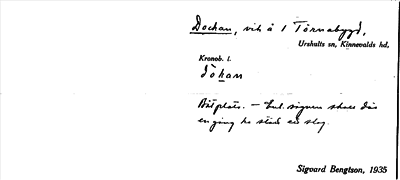 Dockan, vik å 1 Törnabygd,
Urshults sn, Kinnevalds hd,
Kronob. l.
dokan
Båtplats. — Enl. sägnen skall där
en gång ha stått ett slag.
Sigvard Bengtson, 1935